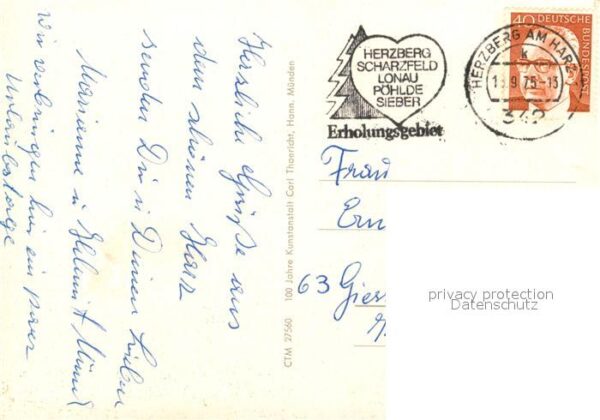 Herzliche Grüße aus
dem schönen Harz
senden Dir u. Deinen Lieben
Marianne u. Helmut
Wir verbringen hier ein paar
Urlaubstage
CTM 27560 100 Jahre Kunstanstalt Carl Thoericht, Hann. Münden
HERZBERG
SCHARZFELD
LONAU
PÖHLDE
SIEBER
Erholungsgebiet
HERZBERG AM HARZ
k
9.75-13
342
40 DEUTSCHE
BUNDESPOST
Frau
Ern
63 Gies
privacy protection
Datenschutz